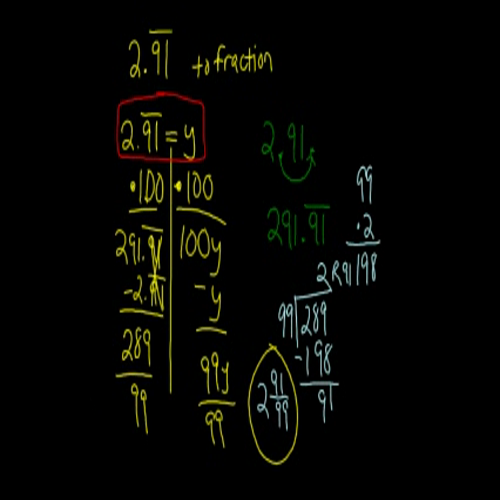 2.9̅1̅ to fraction
2.9̅1̅ = y
·100 ·100
291.9̅1̅ 100y
-2.9̅1̅ -y
289 99y
99 99
2.91
291.9̅1̅
99
·2
198
2R91
99 289
-198
91
2 91/99